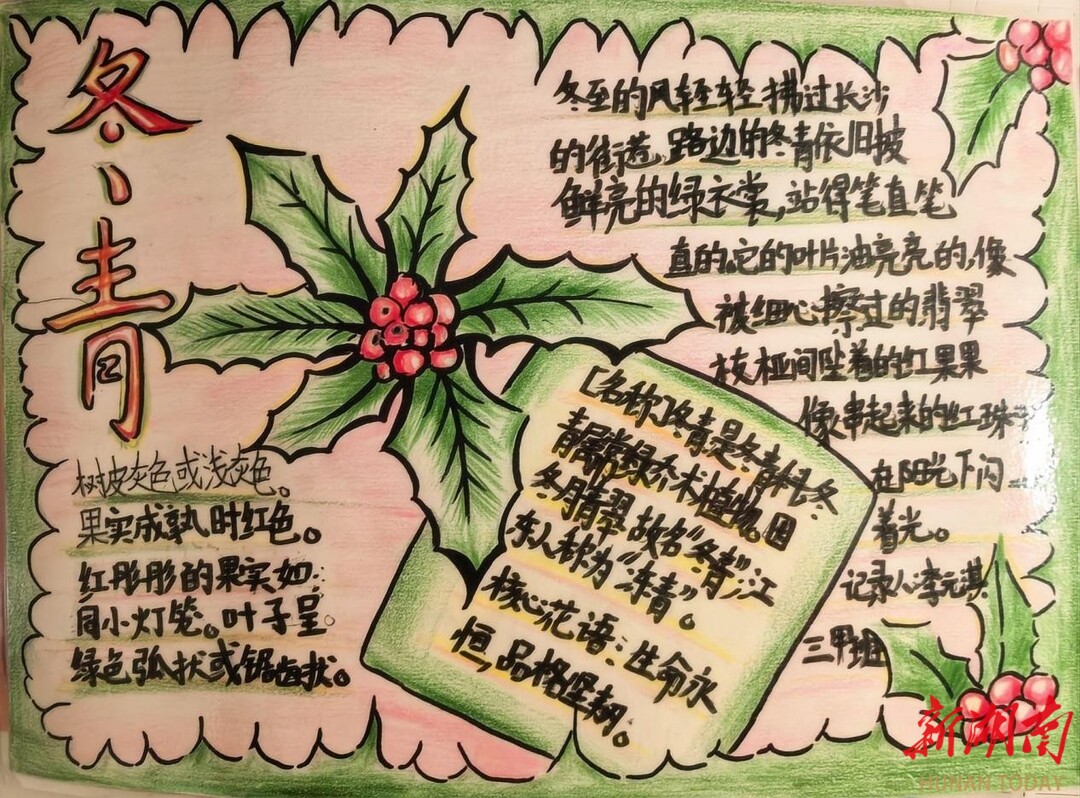 冬青
树皮灰色或浅灰色。
果实成熟时红色。
红彤彤的果实如
同小灯笼。叶子呈
绿色弧状或锯齿状。
冬至的风轻轻拂过长沙
的街道,路边的冬青依旧披
鲜亮的绿衣裳,站得笔直笔
直的。它的叶片油亮亮的,像
被细心擦过的翡翠
枝桠间坠着的红果果
像串起来的红珠子
在阳光下闪
着光。
记录人:李元淇
三甲班
[名称]冬青是冬青科冬
青属常绿乔木植物。因
冬月青翠,故名“冬青”,江
东人称为“冻青”。
核心花语:生命永
恒,品格坚韧。
新湖南
HUNAN TODAY